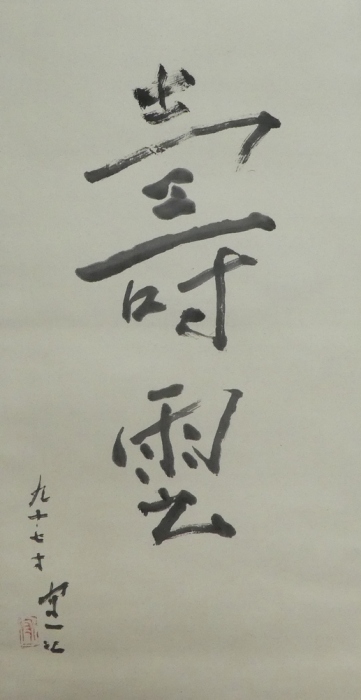 壽雲
九十七才